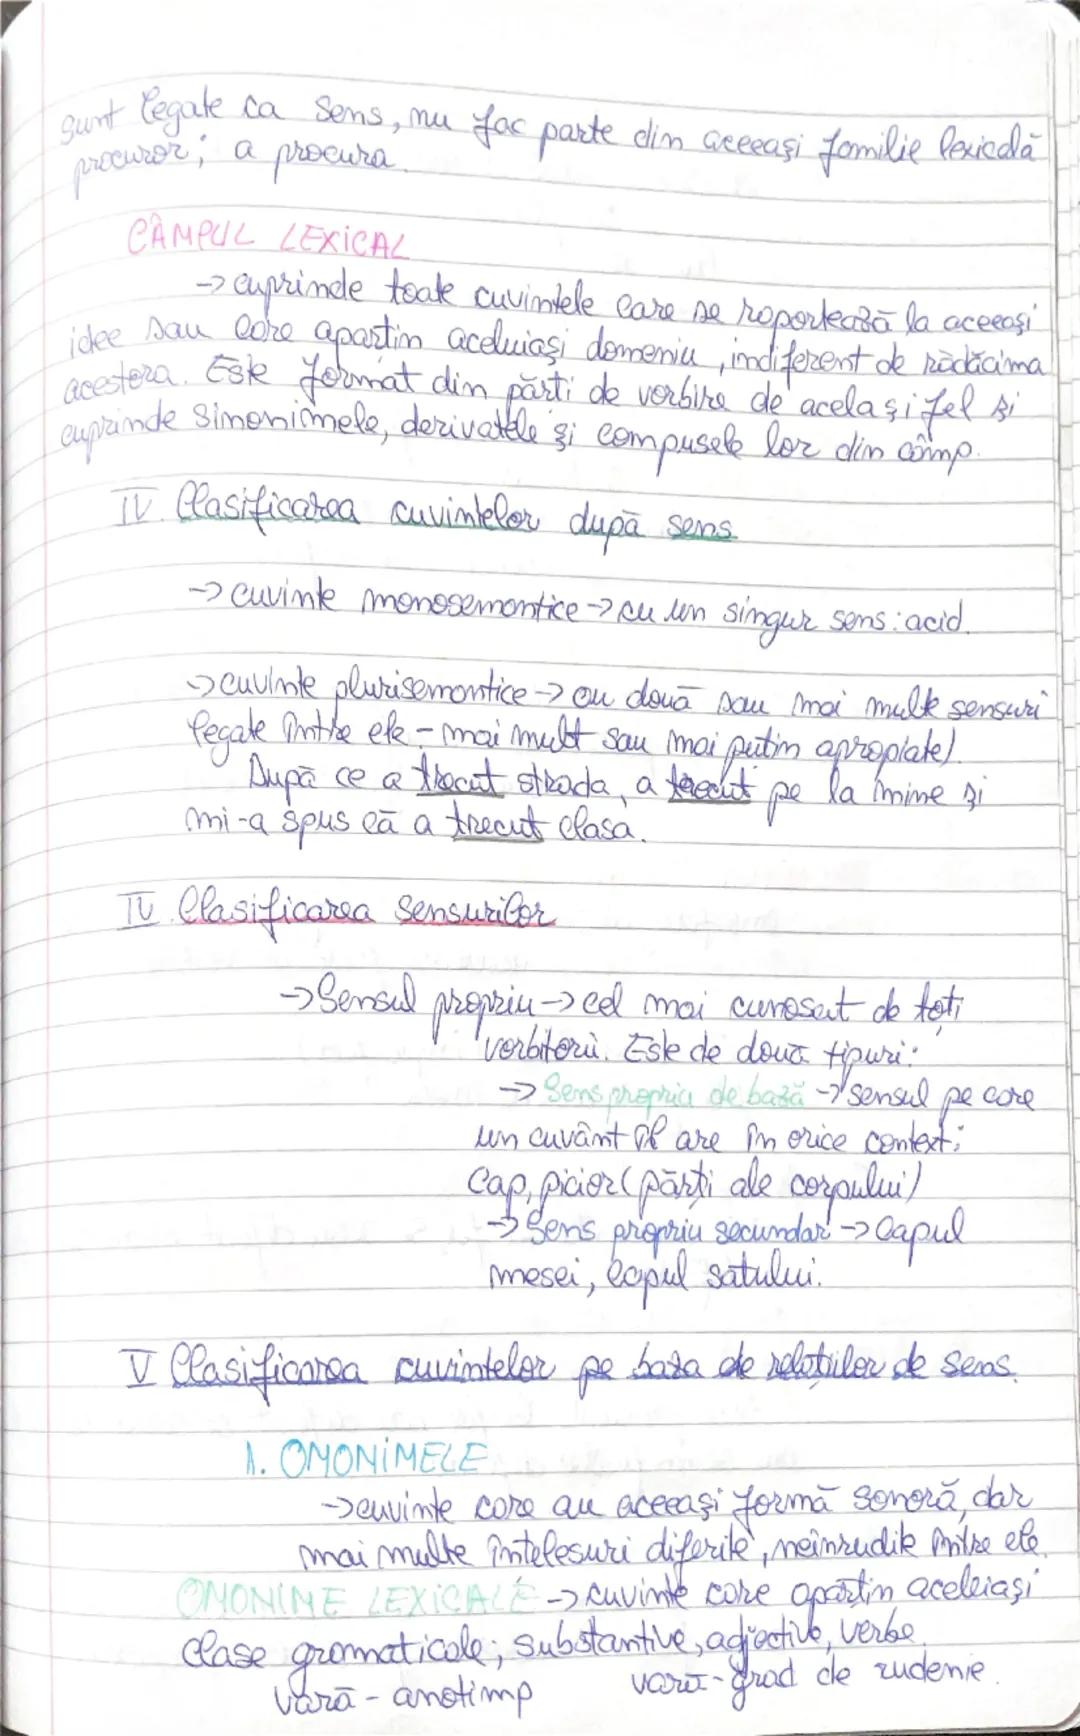 sunt legate ca sens, nu fac parte din aceeași familie lexicală
procuror; a procura.
CÂMPUL LEXICAL
-> cuprinde toate cuvintele care se raportează la aceeași
idee sau care aparțin aceluiași domeniu, indiferent de rădăcina
acestora. Este format din părți de vorbire de același fel și
cuprinde sinonimele, derivatele și compusele lor din câmp.
IV. Clasificarea cuvintelor după sens
-> cuvinte monosemantice -> cu un singur sens: acid.
-> cuvinte plurisemantice -> au două sau mai multe sensuri
legate între ele - mai mult sau mai puțin apropiate).
După ce a trecut strada, a trecut pe la mine și
mi-a spus că a trecut clasa.
IV. Clasificarea sensurilor
-> Sensul propriu -> cel mai cunoscut de toți
vorbitorii. Este de două tipuri:
-> Sens propriu de bază -> sensul pe care
un cuvânt îl are în orice context;
Cap, picior (părți ale corpului)
-> Sens propriu secundar -> Capul
mesei, capul satului.
V Clasificarea cuvintelor pe baza de relațiilor de sens.
1. OMONIMELE
-> cuvinte care au aceeași formă sonoră, dar
mai multe înțelesuri diferite, neînrudite între ele.
OMONIME LEXICALE -> cuvinte care aparțin aceleiași
clase gramaticale; substantive, adjective, verbe.
vară - anotimp vară - grad de rudenie.